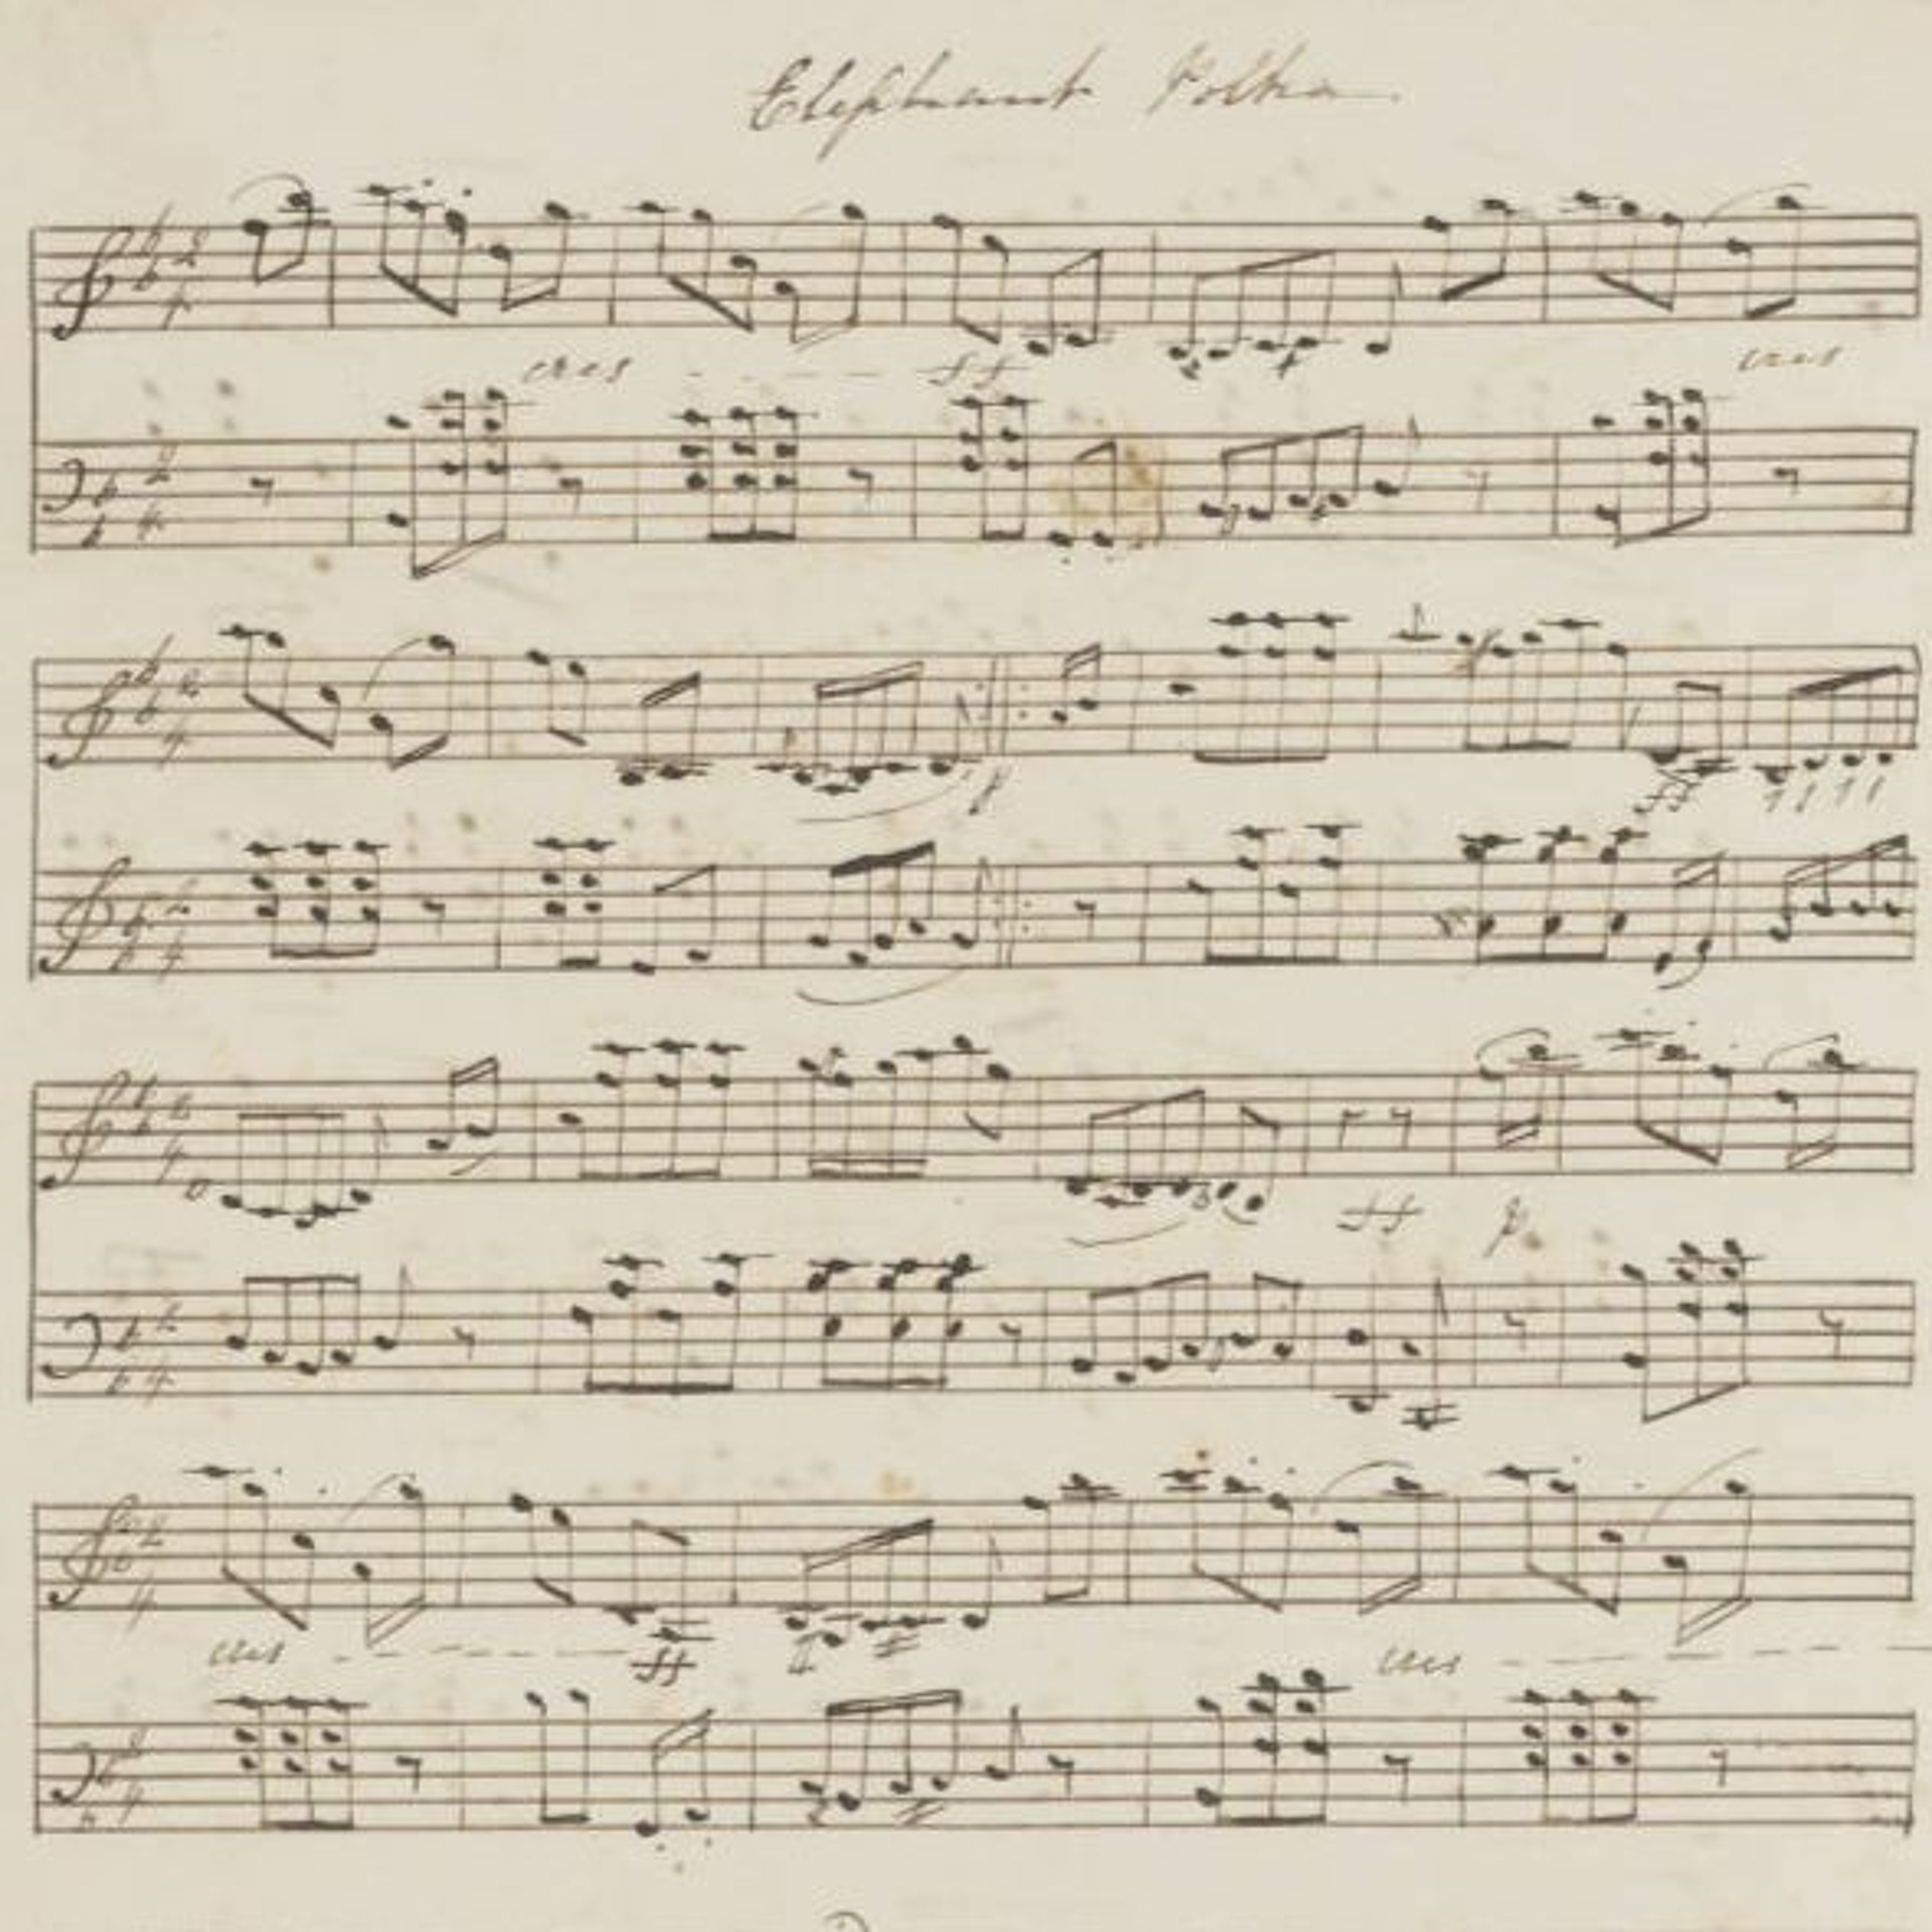 Elephant Polka
cres ff
cres
p
ff
ff p
cres ff cres